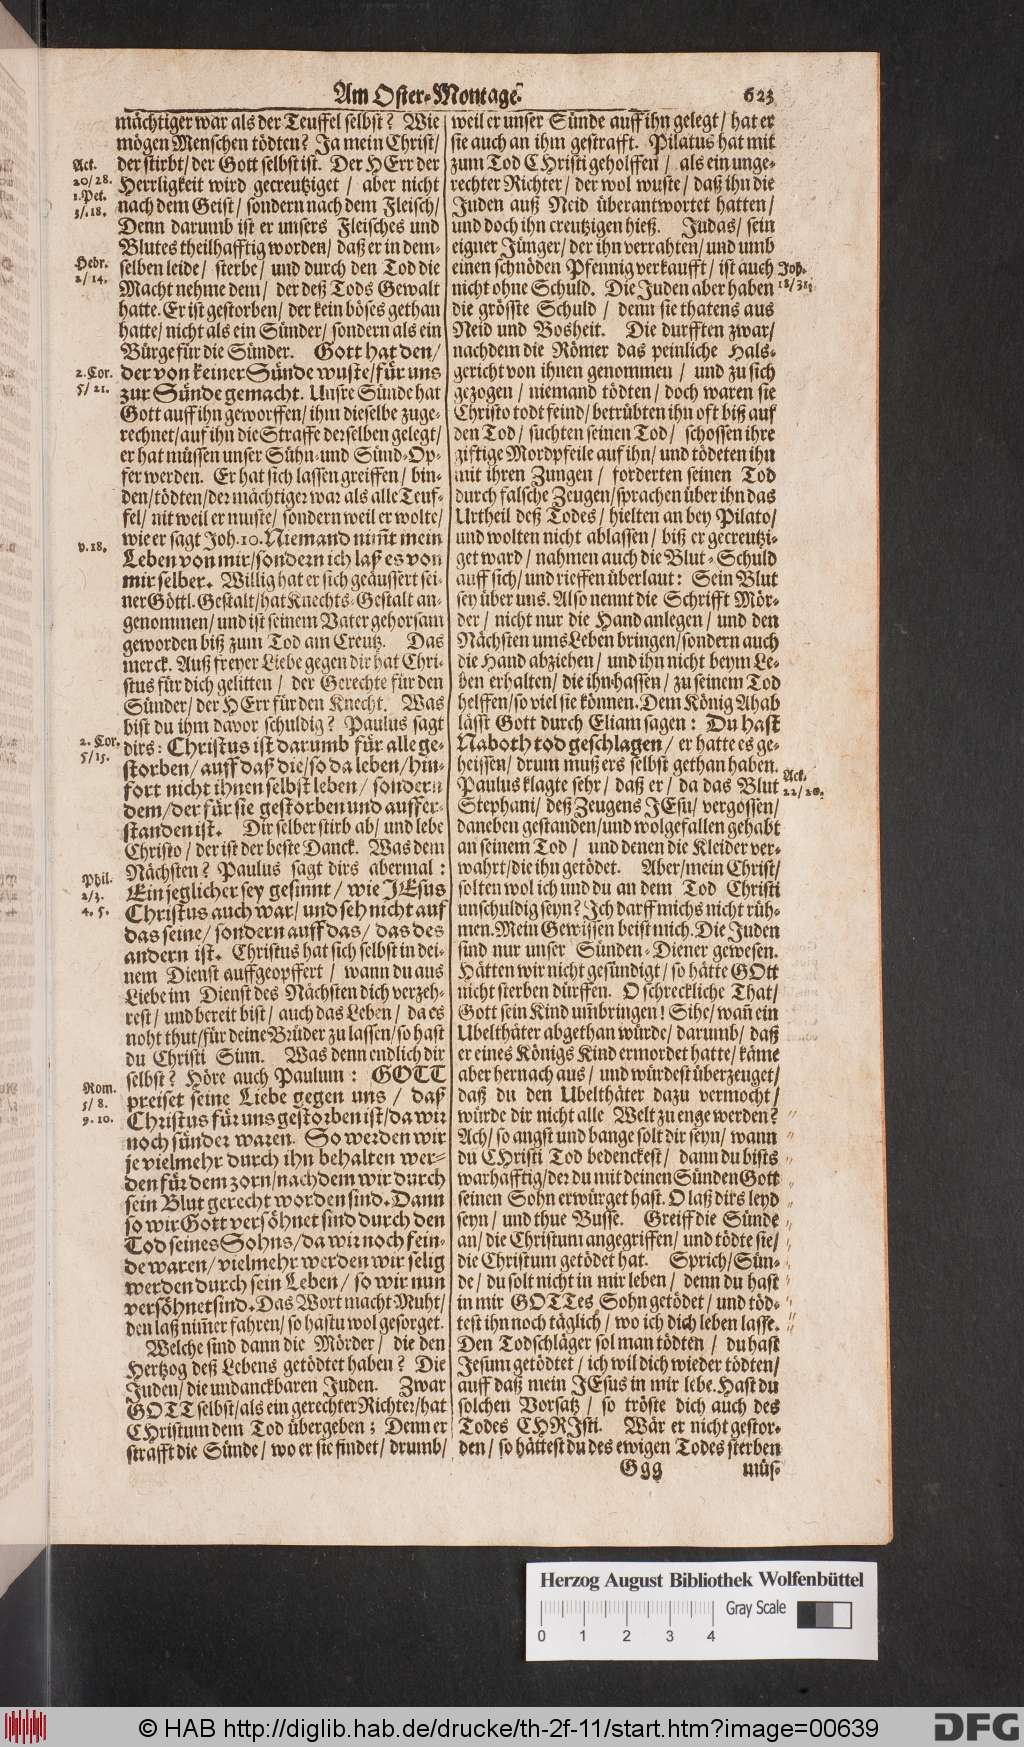 Am Oster-Montage.
623
mächtiger war als der Teuffel selbst? Wie
mögen Menschen tödten? Ja mein Christ/
der stirbt/ der Gott selbst ist. Der HErr der
Herrligkeit wird gecreutziget / aber nicht
nach dem Geist/ sondern nach dem Fleisch/
Denn darumb ist er unsers Fleisches und
Blutes theilhafftig worden/ daß er in dem-
selben leide/ sterbe/ und durch den Tod die
Macht nehme dem/ der deß Tods Gewalt
hatte. Er ist gestorben/ der kein böses gethan
hatte/ nicht als ein Sünder/ sondern als ein
Bürge für die Sünder. Gott hat den/
der von keiner Sünde wuste/ für uns
zur Sünde gemacht. Unsre Sünde hat
Gott auff ihn geworffen/ ihm dieselbe zuge-
rechnet/ auf ihn die Straffe derselben gelegt/
er hat müssen unser Sühn- und Sünd-Op-
fer werden. Er hat sich lassen greiffen/ bin-
den/ tödten/ der mächtiger war als alle Teuf-
fel/ nit weil er muste/ sondern weil er wolte/
wie er sagt Joh. 10. Niemand nim̃t mein
Leben von mir/ sondern ich laß es von
mir selber. Willig hat er sich geäussert sei-
ner Göttl. Gestalt/ hat Knechts-Gestalt an-
genommen/ und ist seinem Vater gehorsam
geworden biß zum Tod am Creutz. Das
merck. Auß freyer Liebe gegen dir hat Chri-
stus für dich gelitten / der Gerechte für den
Sünder/ der HErr für den Knecht. Was
bist du ihm davor schuldig? Paulus sagt
dirs: Christus ist darumb für alle ge-
storben/ auff daß die/ so da leben/ hin-
fort nicht ihnen selbst leben/ sondern
dem/ der für sie gestorben und auffer-
standen ist. Dir selber stirb ab/ und lebe
Christo/ der ist der beste Danck. Was dem
Nächsten? Paulus sagt dirs abermal:
Ein jeglicher sey gesinnt/ wie JEsus
Christus auch war/ und seh nicht auf
das seine/ sondern auff das/ das des
andern ist. Christus hat sich selbst in dei-
nem Dienst auffgeopffert / wann du aus
Liebe im Dienst des Nächsten dich verzeh-
rest/ und bereit bist/ auch das Leben/ da es
noht thut/ für deine Brüder zu lassen/ so hast
du Christi Sinn. Was denn endlich dir
selbst? Höre auch Paulum: GOTT
preiset seine Liebe gegen uns / daß
Christus für uns gestorben ist/ da wir
noch sünder waren. So werden wir
je vielmehr durch ihn behalten wer-
den für dem zorn/ nachdem wir durch
sein Blut gerecht worden sind. Dann
so wir Gott versöhnet sind durch den
Tod seines Sohns/ da wir noch fein-
de waren/ vielmehr werden wir selig
werden durch sein Leben/ so wir nun
versöhnet sind. Das Wort macht Muht/
den laß nim̃er fahren/ so hastu wol gesorget.
Welche sind dann die Mörder/ die den
Hertzog deß Lebens getödtet haben? Die
Juden/ die undanckbaren Juden. Zwar
GOTT selbst/ als ein gerechter Richter/ hat
CHristum dem Tod übergeben; Denn er
strafft die Sünde/ wo er sie findet/ drumb/
Act.
20/28.
1. Pet.
3/18.
Hebr.
2/14.
2. Cor.
5/21.
v. 18.
2. Cor.
5/15.
Phil.
2/3.
4. 5.
Rom.
5/8.
9. 10.
weil er unser Sünde auff ihn gelegt/ hat er
sie auch an ihm gestrafft. Pilatus hat mit
zum Tod CHristi geholffen/ als ein unge-
rechter Richter/ der wol wuste/ daß ihn die
Juden auß Neid überantwortet hatten/
und doch ihn creutzigen hieß. Judas/ sein
eigner Jünger/ der ihn verrahten/ und umb
einen schnöden Pfennig verkaufft/ ist auch
nicht ohne Schuld. Die Juden aber haben
die grösste Schuld / denn sie thatens aus
Neid und Bosheit. Die durfften zwar/
nachdem die Römer das peinliche Hals-
gericht von ihnen genommen / und zu sich
gezogen/ niemand tödten/ doch waren sie
Christo todt feind/ betrübten ihn oft biß auf
den Tod/ suchten seinen Tod/ schossen ihre
giftige Mordpfeile auf ihn/ und tödeten ihn
mit ihren Zungen / forderten seinen Tod
durch falsche Zeugen/ sprachen über ihn das
Urtheil deß Todes/ hielten an bey Pilato/
und wolten nicht ablassen/ biß er gecreutzi-
get ward/ nahmen auch die Blut-Schuld
auff sich/ und rieffen überlaut: Sein Blut
sey über uns. Also nennt die Schrifft Mör-
der/ nicht nur die Hand anlegen/ und den
Nächsten ums Leben bringen/ sondern auch
die Hand abziehen/ und ihn nicht beym Le-
ben erhalten/ die ihn hassen/ zu seinem Tod
helffen/ so viel sie können. Dem König Ahab
lässt Gott durch Eliam sagen: Du hast
Naboth tod geschlagen/ er hatte es ge-
heissen/ drum muß ers selbst gethan haben.
Paulus klagte sehr/ daß er/ da das Blut
Stephani/ deß Zeugens JEsu/ vergossen/
daneben gestanden/ und wolgefallen gehabt
an seinem Tod / und denen die Kleider ver-
wahrt/ die ihn getödet. Aber/ mein Christ/
solten wol ich und du an dem Tod Christi
unschuldig seyn? Ich darff michs nicht rüh-
men. Mein Gewissen beist mich. Die Juden
sind nur unser Sünden-Diener gewesen.
Hätten wir nicht gesündigt/ so hätte GOtt
nicht sterben dürffen. O schreckliche That/
Gott sein Kind um̃bringen! Sihe/ wañ ein
Ubelthäter abgethan würde/ darumb/ daß
er eines Königs Kind ermordet hatte/ käme
aber hernach aus/ und würdest überzeuget/
daß du den Ubelthäter dazu vermocht/
würde dir nicht alle Welt zu enge werden?
Ach/ so angst und bange solt dir seyn/ wann
du CHristi Tod bedenckest/ dann du bists
warhafftig/ der du mit deinen Sünden Gott
seinen Sohn erwürget hast. O laß dirs leyd
seyn/ und thue Busse. Greiff die Sünde
an/ die Christum angegriffen/ und tödte sie/
die Christum getödet hat. Sprich/ Sün-
de/ du solt nicht in mir leben/ denn du hast
in mir GOTTes Sohn getödet/ und töd-
test ihn noch täglich/ wo ich dich leben lasse.
Den Todschläger sol man tödten/ du hast
Jesum getödtet/ ich wil dich wieder tödten/
auff daß mein JEsus in mir lebe. Hast du
solchen Vorsatz/ so tröste dich auch des
Todes CHRIsti. Wär er nicht gestor-
den/ so hättest du des ewigen Todes sterben
Joh.
18/31.
Act.
22/20.
Ggg
müs-
Herzog August Bibliothek Wolfenbüttel
Gray Scale
0 1 2 3 4
© HAB http://diglib.hab.de/drucke/th-2f-11/start.htm?image=00639
DFG